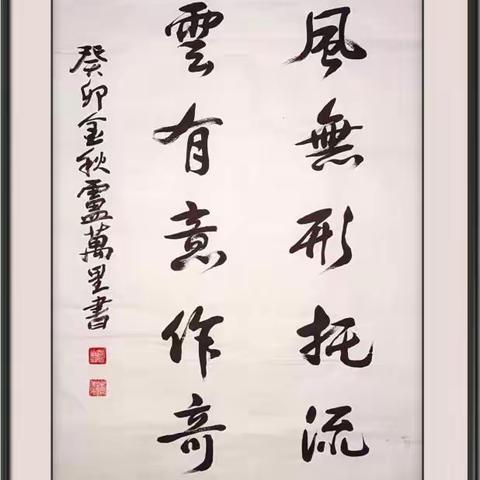 風無形托流
雲有意作奇
癸卯金秋盧萬里書